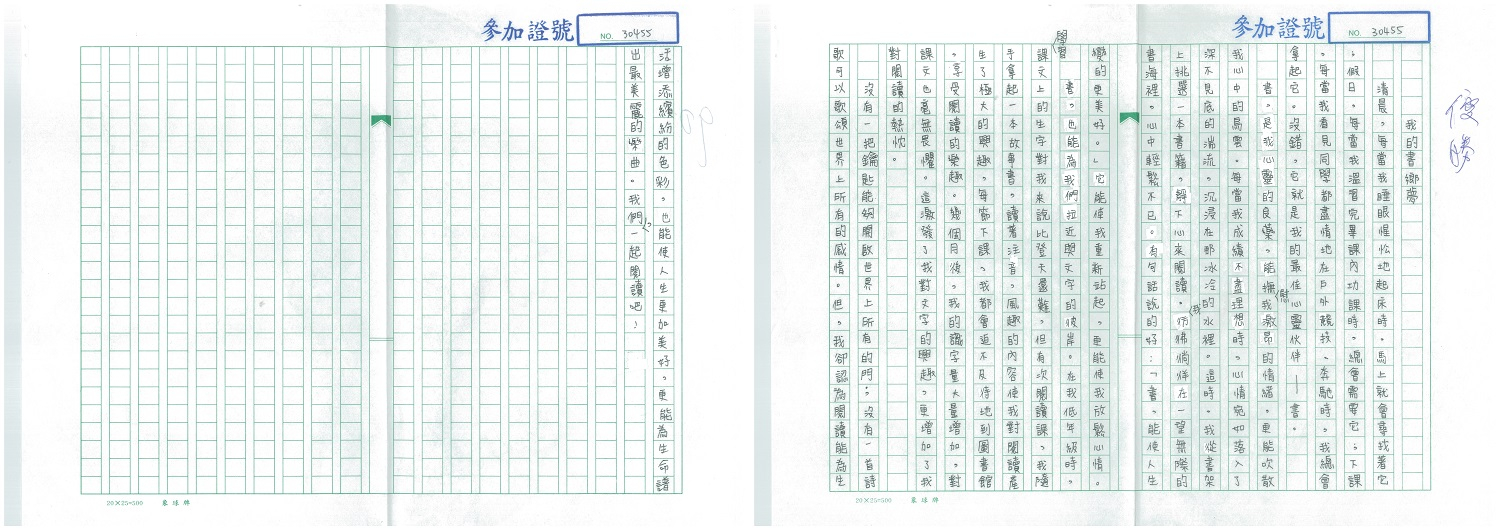 參加證號
NO. 30455
優勝
我的書鄉夢
清晨，每當我睡眼惺忪地起床時，馬上就會尋找著它
；假日，每當我溫習完畢課內功課時，總會需要它；下課
，每當我看見同學都盡情地在戶外競技、奔馳時，我總會
拿起它。沒錯，它就是我的最佳心靈伙伴——書。
書，是我心靈的良藥，能撫慰我激昂的情緒，更能吹散
我心中的烏雲。每當我成績不盡理想時，心情宛如落入了
深不見底的湍流，沉浸在那冰冷的水裡。這時，我從書架
上挑選一本書籍，靜下心來閱讀。彷彿我徜徉在一望無際的
書海裡，心中輕鬆不已。有句話說的好：「書，能使人生
變的更美好。」它能使我重新站起，更能使我放鬆心情。
書，也能為我們拉近與文字的彼岸。在我低年級時，
學習課文上的生字對我來說比登天還難，但有次閱讀課，我隨
手拿起一本故事書，讀著注音，風趣的內容使我對閱讀產
生了極大的興趣，每節下課，我都會迫不及待地到圖書館
，享受閱讀的樂趣。幾個月後，我的識字量大量增加，對
課文也毫無畏懼。這激發了我對文字的興趣，更增加了我
對閱讀的熱忱。
沒有一把鑰匙能夠開啟世界上所有的門；沒有一首詩
歌可以歌頌世界上所有的感情。但，我卻認為閱讀能為生
20×25=500 象球牌
參加證號
NO. 30455
活增添繽紛的色彩，也能使人生更加美好，更能為生命譜
出最美麗的樂曲。我們一起閱讀吧！
99
20×25=500 象球牌